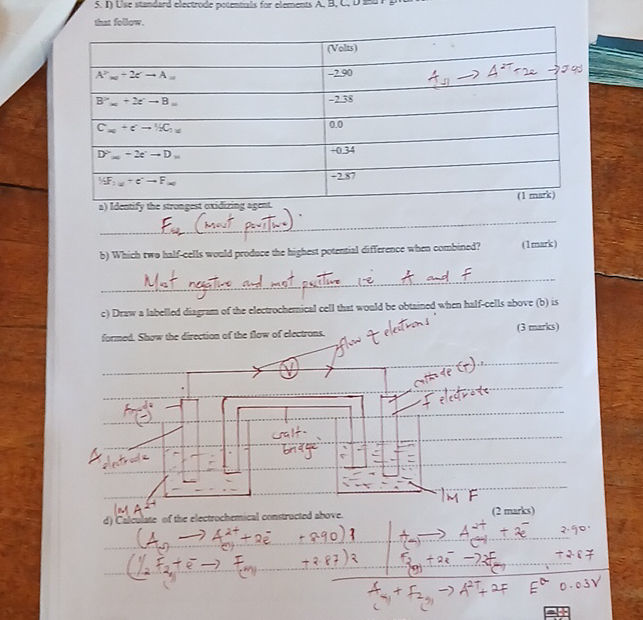 5. I) Use standard electrode potentials for elements A, B, C, D and F
that follow.
(Volts)
A²⁺(aq) + 2e⁻ → A(s) −2.90
A(s) → A²⁺ + 2e
B²⁺(aq) + 2e⁻ → B(s) −2.38
C⁺(aq) + e⁻ → ½C₂(g) 0.0
D²⁺(aq) + 2e⁻ → D(s) +0.34
½F₂(g) + e⁻ → F⁻(aq) −2.87
a) Identify the strongest oxidizing agent. (1 mark)
(most positive)
b) Which two half-cells would produce the highest potential difference when combined? (1mark)
Most negative and most positive i.e A and F
c) Draw a labelled diagram of the electrochemical cell that would be obtained when half-cells above (b) is
formed. Show the direction of the flow of electrons. (3 marks)
flow of electrons
V
cathode (+).
F electrode
Anode
(−)
salt-
bridge
A electrode
1M A²⁺
1M F
d) Calculate of the electrochemical constructed above. (2 marks)
(A(s) → A²⁺(aq) + 2e⁻ +2.90) 1
A(s) → A²⁺(aq) + 2e⁻ 2.90
(½ F₂(g) + e⁻ → F(aq) +2.87) 2
F₂(g) + 2e⁻ → 2F(aq) +2.87
A(s) + F₂(g) → A²⁺ + 2F E⁰ 0.03V